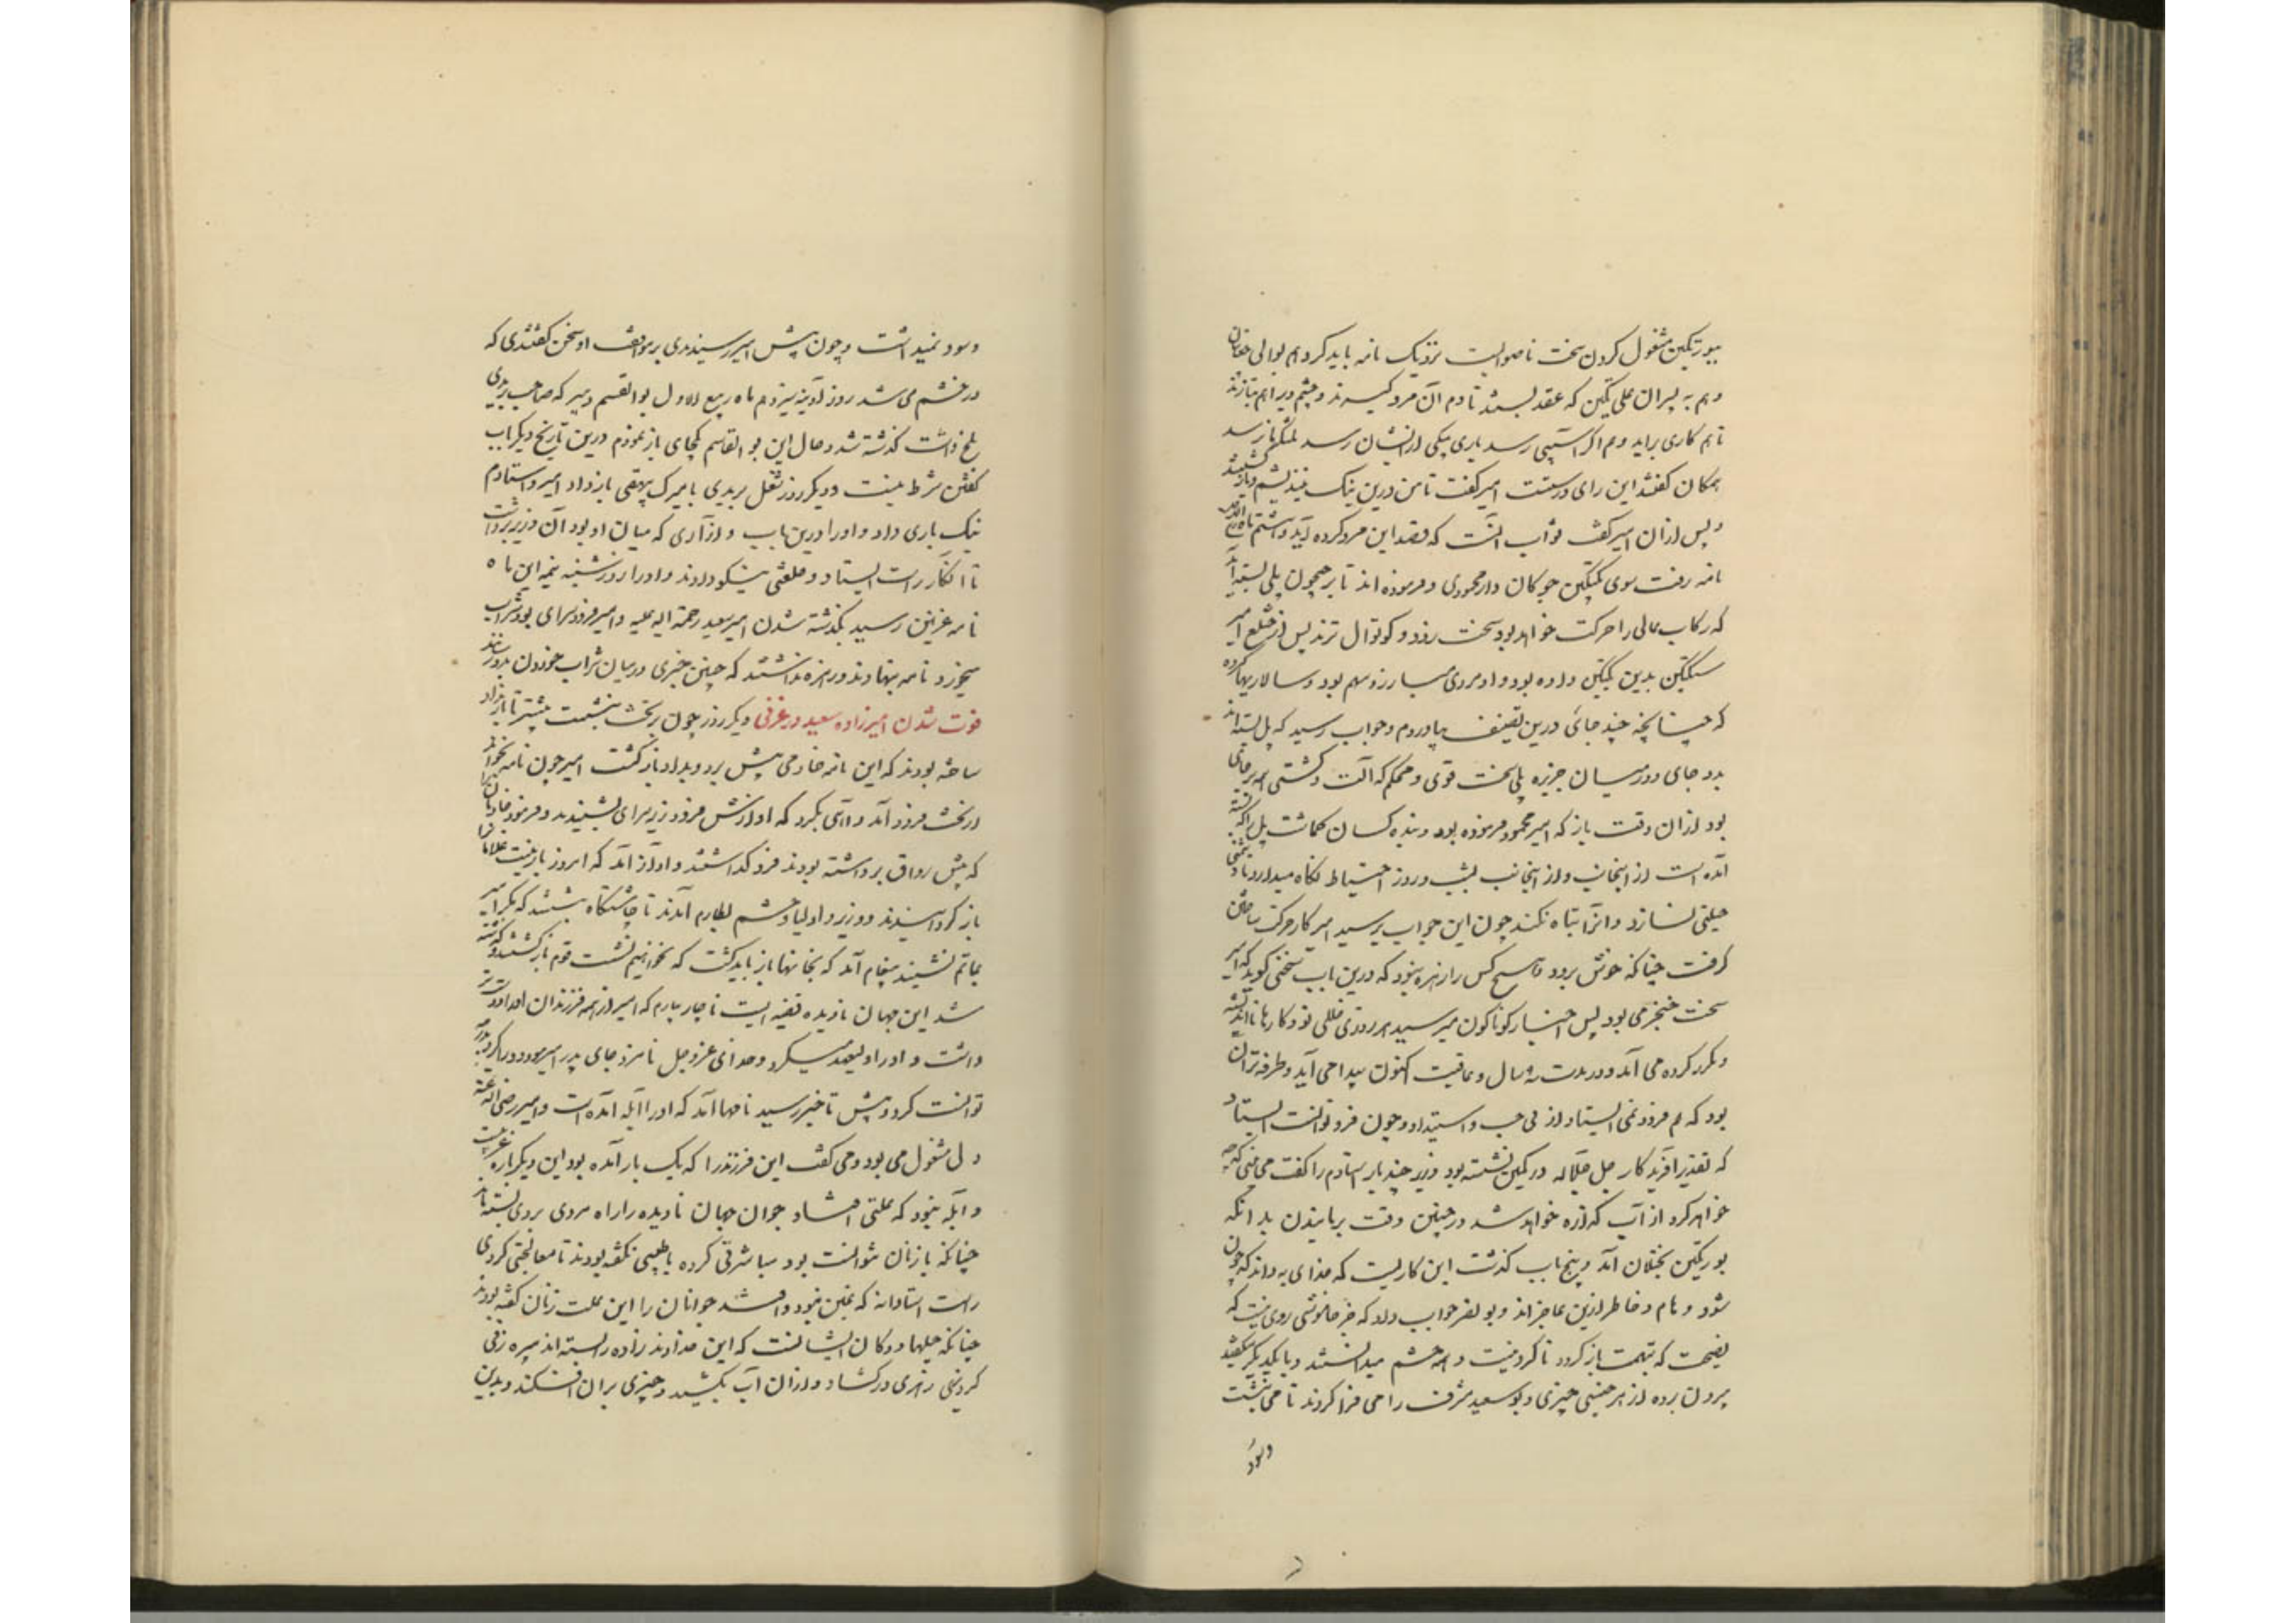 ببورتکین مشغول کردن سخت ناصوابست نزدیک نامه باید کرد هم بوالی چغانیان
و هم به پسران علی تکین که عقد بستند تا دم آن مرد گیرند و حشم ویرا هم بتازند
تا هم کاری براید و هم اگر آسیبی رسد باری بیکی ازیشان رسد بلشکر ما نرسد
همکان گفتند این رای درستست امیر گفت تا من درین نیک بیندیشم و بازگشتند
و پس ازان امیر گفت صواب آنست که قصد این مرد کرده آید و هشتم ماه ربیع الاول
نامه رفت سوی بکتکین چوکان دار محمودی و فرموده اند تا بر جیحون پلی بسته آید
که رکاب عالی را حرکت خواهد بود سخت زود و کوتوال ترمذ پس از قتلغ امیر
سبکتکین بدین بکتکین داده بود و او مردی مبارز و سهم بود و سالاریها کرده
که چنانچه چند جای درین تصنیف بیاوردم و جواب رسید که پل بسته اند
بدو جای و در میان جزیره پلی سخت قوی و محکم که آلت و کشتی همه برجای
بود ازان وقت باز که امیر محمود فرموده بود و بنده کسان کماشت پل را که بسته
آمده است ازینجانب و از اینجانب بشب و روز احتیاط نگاه میدارد تا دشمنی
حیلتی نسازد و انرا تباه نکند چون این جواب برسید امیر کار حرکت ساختن
گرفت چنانکه خویش برود و هیچ کس را زهره نبود که درین باب سخنی گوید که امیر
سخت ضجر می بود پس اخبار گوناگون میرسید هر روزی خللی نو و کارها نااندیشه
و مکرر کرده می آمد و در مدت نه سال و عاقبت اکنون پیدا می آید و طرفه تر آن
بود که هم فرود نمی ایستاد از لی حب و استبداد و چون فرو توانست ایستاد
که تقدیر آفریدگار جل جلاله در کمین نشسته بود وزیر چند بار استادم را گفت می بینی که چه
خواهد کرد از آب گذاره خواهد شد در چنین وقت برمانیدن بدانکه
بورتکین بختلان آمد و پنج اب گذشت این کاریست که خدای به داند که چون
شود و اوهام و خاطر ازین عاجزاند و بونصر جواب داد که جز خاموشی روی نیست که
نصیحت که بتهمت بازگردد ناکردنیست و همه حشم میدانستند و با یکدیگر میگفتند
بیرون پرده از هر جنسی چیزی و بوسعید مشرف را می فرا کردند تا می نبشت
وسود
وسود نمیداشت و چون پیش امیر رسیدندی بر موافقت او سخن گفتندی که
در خشم می شد روز آدینه سیزدهم ماه ربیع الاول بوالقسم دبیر که صاحب بریدی
بلخ داشت گذشته شد و حال این بوالقاسم یکجای باز نمودم درین تاریخ دیگر باب
گفتن شرط نیست و دیگر روز شغل بریدی بامیرک بیهقی باز داد امیر و استادم
نیک یاری داد و او را درین باب و ازآری که میان او بود آن وزیر برداشت
تا انکار راست ایستاد و خلعتی نیکو دادند و او را روز شنبه نیمه این ماه
نامه غزنین رسید بگذشته شدن امیر سعید رحمة الله علیه و امیر فرود سرای بود شراب
میخورد نامه بنهادند و زهره نداشتند که چنین خبری در میان شراب خوردن بدو رسانند
فوت شدن امیرزاده سعید در غزنی دیگر روز چون بر تخت بنشست پیشتر تا بار داد
ساخته بودند که این نامه خادمی پیش برد و بداد و بازگشت امیر چون نامه بخواند
از تخت فرود آمد و آهی بکرد که آوازش فرود زیر سرای بشنیدند و فرمود خادمان را
که پیش رواق برداشته بودند فرو گذاشتند و آواز آمد که امروز بار نیست غلامان را
باز گردانیدند و وزیر و اولیا و حشم بطارم آمدند تا چاشتگاه بنشستند که مگر امیر
بماتم نشیند پیغام آمد که بخانها باز باید گشت که نخواهیم نشست قوم بازگشتند و گذشته
شد این جهان نادیده قصه ایست ناچار بیارم که امیر از همه فرزندان او را دوست تر
داشت و او را ولیعهد میکرد و خدای عزوجل نامزد جای پدر امیر مودود را کرد پدر چه
توانست کرد و پیش تا خبر رسید نامها آمد که او را آبله آمده است و امیر رضی الله عنه
دل مشغول می بود و می گفت این فرزند را که یک بار آمده بود این دیگر باره غریبست
و آبله نبود که علتی افتاد جوان جهان نادیده را و راه مردی بروی بسته ماند
چنانکه با زنان نتوانست بود مباشرتی کرده باطبیبی نگفته بودند تا معالجتی کردی
راست استادانه که عنین نبود و افتد جوانان را این علت زنان گفته بودند
چنانکه حیلها و دکان ایشانست که این خداوند زاده را بسته اند پیره زنی
کردنی زهری در گشاد و ازان آب بکشید و چیزی بران افکند و بدین